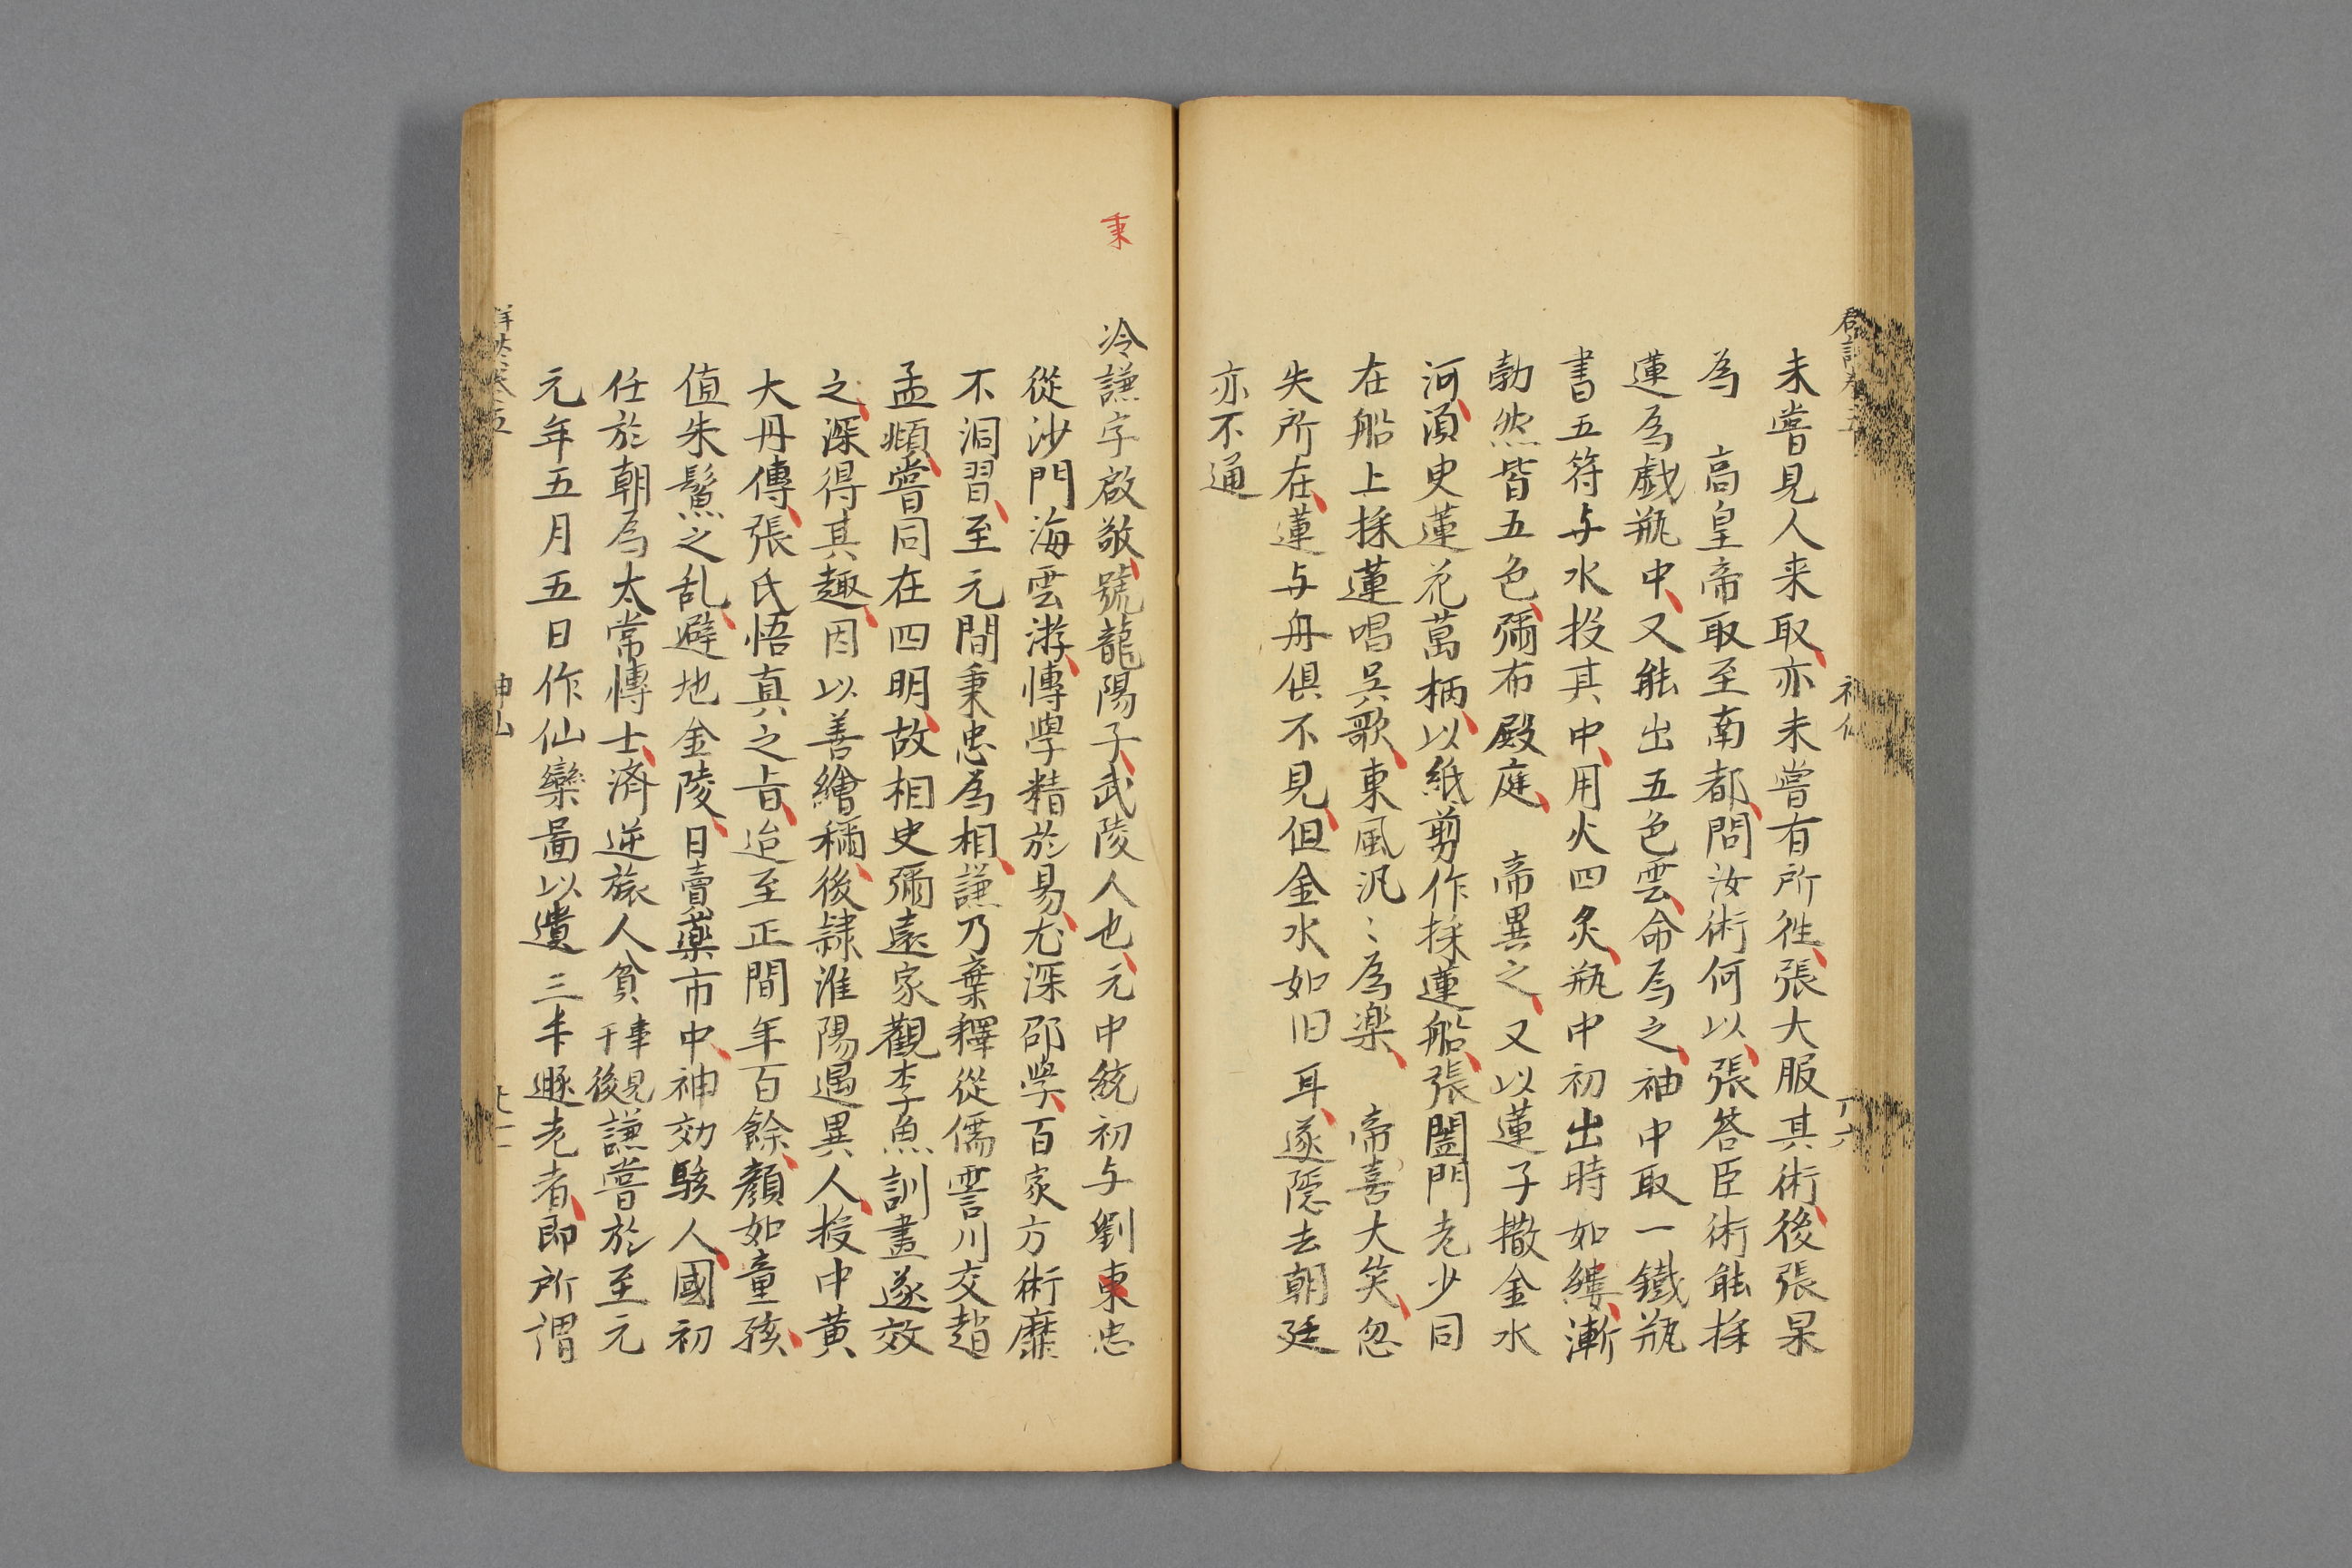 未嘗見人来取亦未嘗有所徃張大服其術後張杲
為 高皇帝取至南都問汝術何以張答臣術能採
蓮為戯瓶中又能出五色雲命為之袖中取一鐵瓶
書五符与水投其中用火四炙瓶中初出時如縷漸
勃然皆五色彌布殿庭 帝異之又以蓮子撒金水
河湏臾蓮花萬柄以紙剪作採蓮船張闔門老少同
在船上採蓮唱吴歌東風汎〻為楽 帝喜大笑忽
失所在蓮与舟俱不見但金水如旧耳遂隠去朝廷
亦不通
秉
冷謙字啟敬號龍陽子武陵人也元中統初与劉東忠
從沙門海雲游博學精於易尤深邵學百家方術靡
不洞習至元間秉忠為相謙乃棄釋從儒霅川交趙
孟頫嘗同在四明故相史彌遠家觀李魚訓畫遂效
之深得其趣因以善繪稱後隷淮陽遇異人授中黄
大丹傳張氏悟真之㫖迨至正間年百餘顏如童孩
值朱鬃之乱避地金陵日賣藥市中神効駭人國初
任於朝為太常博士済逆旅人貧事見千後謙嘗於至元
元年五月五日作仙欒啚以遺三丰遯老者即所謂